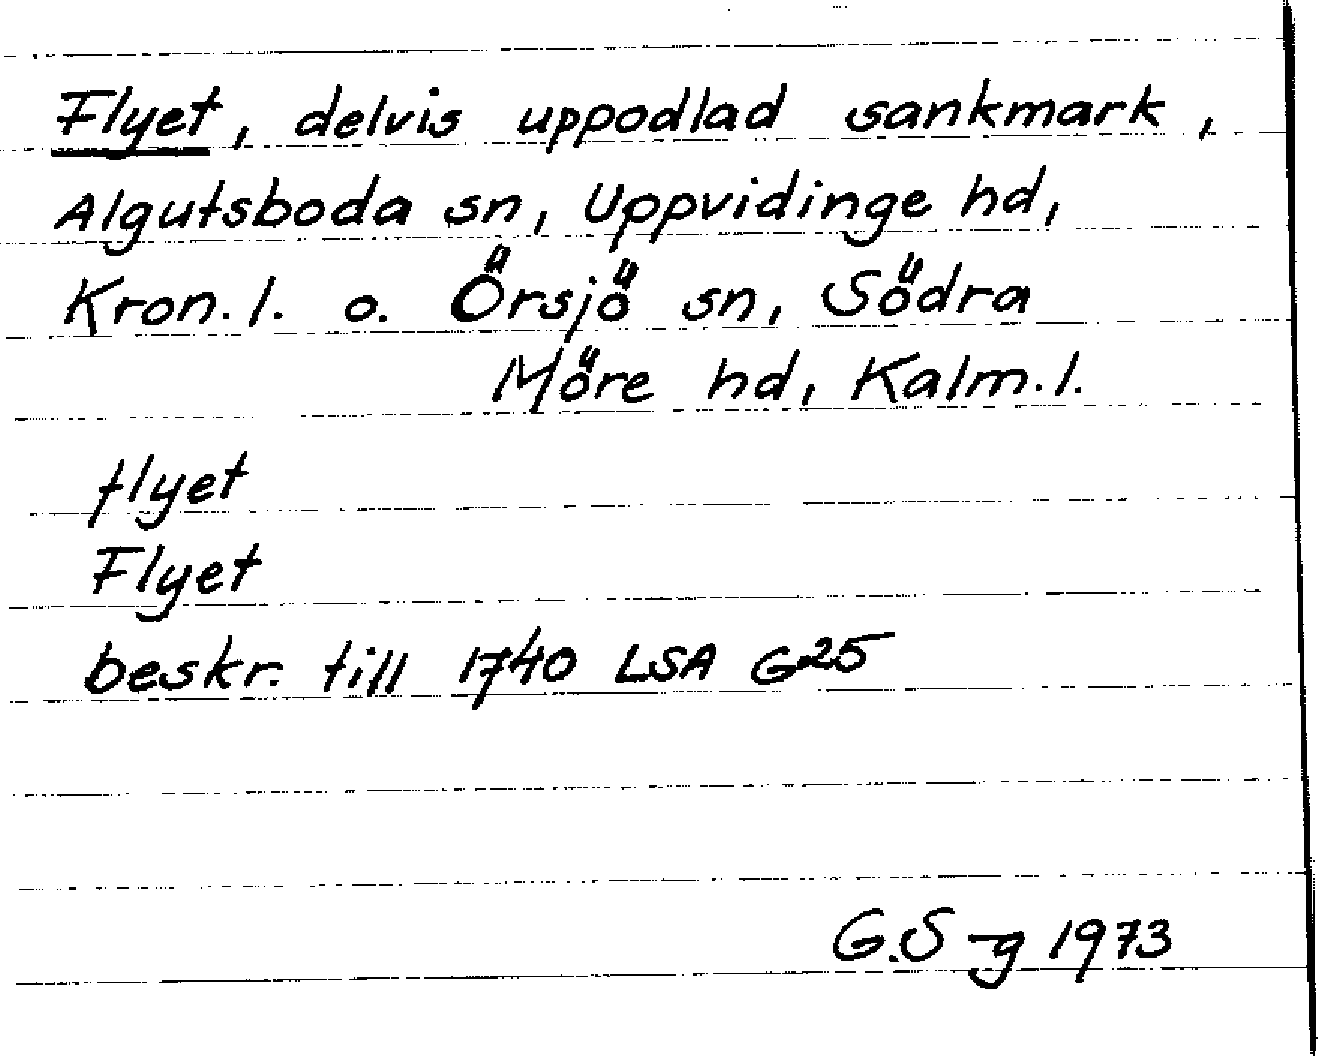 Flyet, delvis uppodlad sankmark,
Algutsboda sn, Uppvidinge hd,
Kron.l. o. Örsjö sn, Södra
Möre hd, Kalm.l.
flyet
Flyet
beskr. till 1740 LSA G25
G.S-g 1973